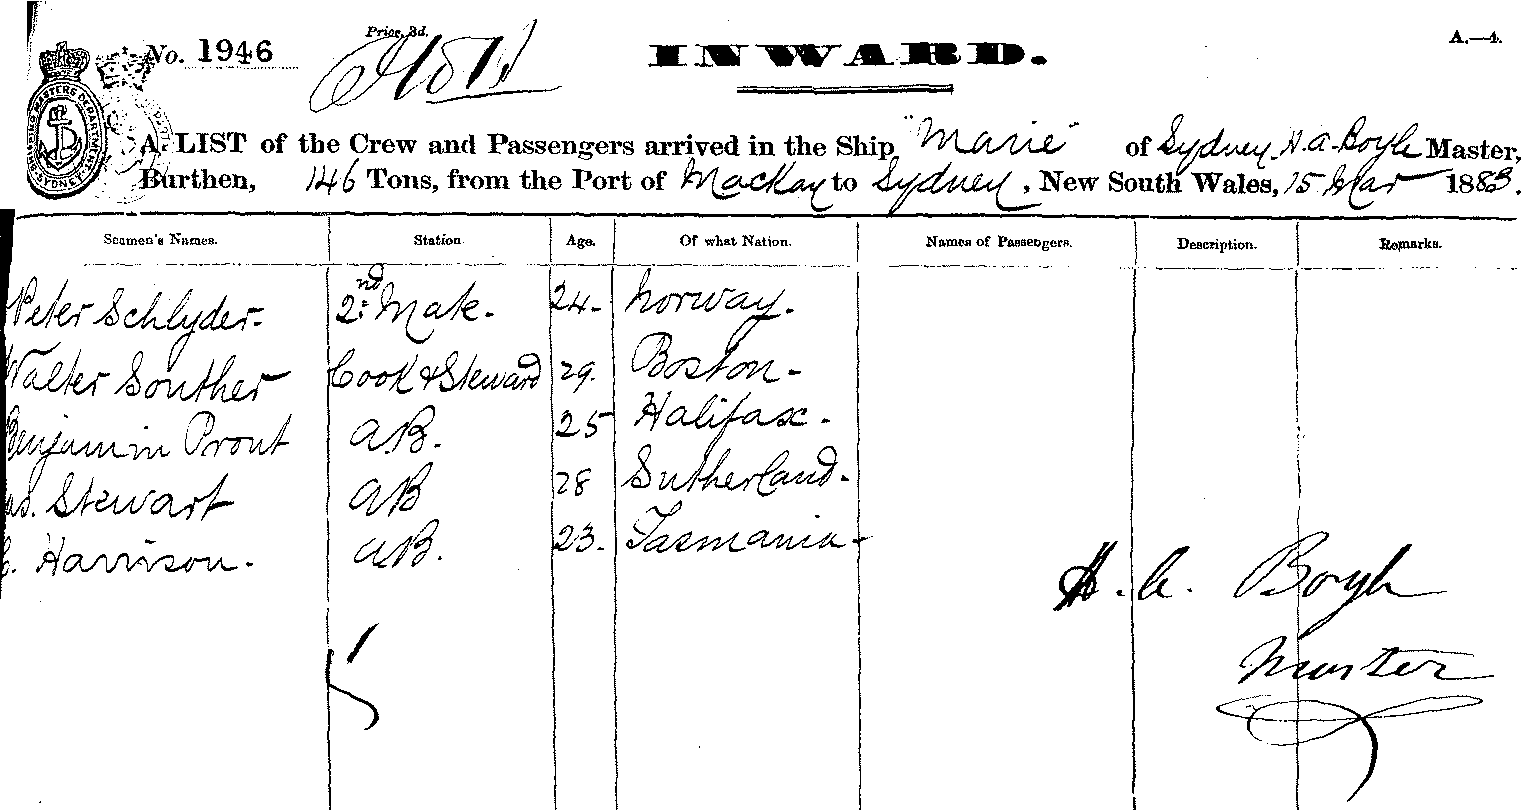 Price, 3d.
No. 1946
INWARD.
A.—4.
SHIPPING MASTERS DEPARTMENT SYDNEY
A LIST of the Crew and Passengers arrived in the Ship "Marie" of Sydney H.A. Boyle Master,
Burthen, 146 Tons, from the Port of Mackay to Sydney, New South Wales, 15 Mar 1883.
Seamen's Names. Station. Age. Of what Nation. Names of Passengers. Description. Remarks.
Peter Schlyder. 2nd Mate. 24. Norway.
Walter Souther Cook & Steward 29. Boston.
Benjamin Prout AB. 25 Halifax.
as. Stewart AB 28 Sutherland.
Harrison. AB. 23. Tasmania
H. A. Boyle
Master
5